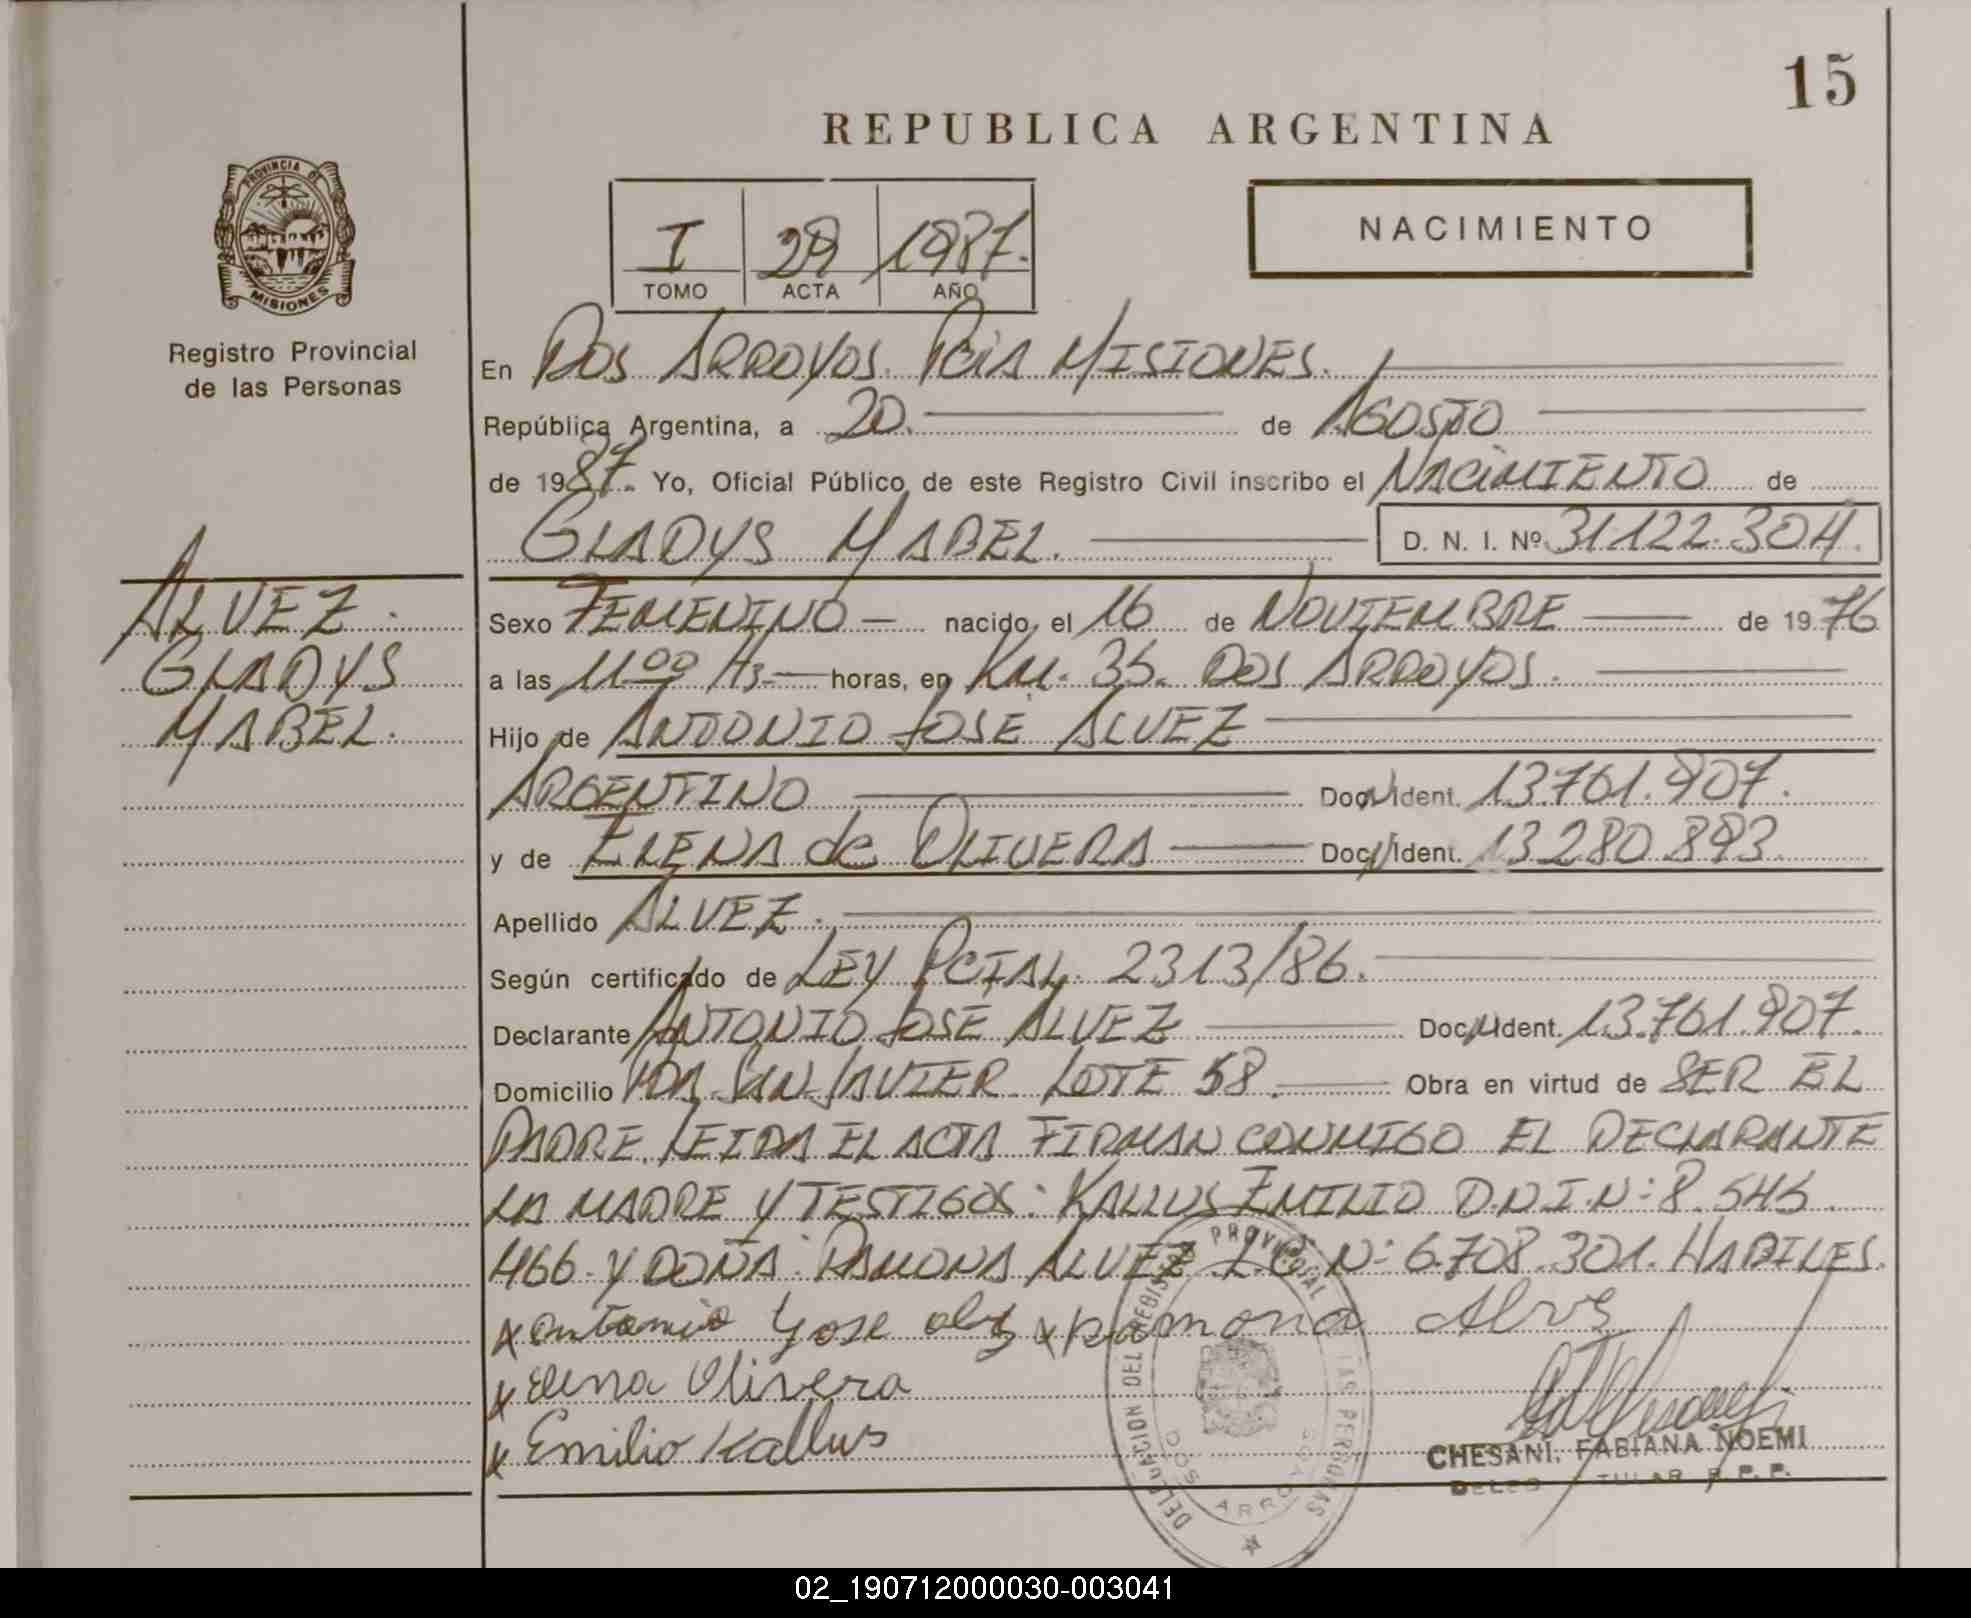 15
REPUBLICA ARGENTINA
PROVINCIA DE
MISIONES
Registro Provincial
de las Personas
I 29 1987.
TOMO ACTA AÑO
NACIMIENTO
En DOS ARROYOS. PCIA MISIONES.
República Argentina, a 20. de AGOSTO
de 1987. Yo, Oficial Público de este Registro Civil inscribo el NACIMIENTO de
GLADYS MABEL. D. N. I. Nº 31.122.304.
ALVEZ.
GLADYS
MABEL.
Sexo FEMENINO - nacido el 16 de NOVIEMBRE de 1976
a las 11 00 Hs - horas, en KM. 35. DOS ARROYOS.
Hijo de ANTONIO JOSÉ ALVEZ
ARGENTINO Doc. Ident. 13.761.907.
y de ELENA de OLIVERA Doc. Ident. 13.280.893.
Apellido ALVEZ.
Según certificado de LEY PCIAL. 2313/86.
Declarante ANTONIO JOSÉ ALVEZ Doc. Ident. 13.761.907.
Domicilio SAN JAVIER LOTE 58. Obra en virtud de SER EL
PADRE. LEIDA EL ACTA FIRMAN CONMIGO EL DECLARANTE
LA MADRE Y TESTIGOS: KALLUS EMILIO D.N.I.N: 8.545.
466. Y DOÑA: RAMONA ALVEZ L.C. N: 6.708.301. HABILES.
x Antonio Jose x Ramona
x Elena Olivera
x Emilio Kallus
DELEGACION DEL REGISTRO PROVINCIAL DE LAS PERSONAS
DOS ARROYOS
CHESANI, FABIANA NOEMI
R. P. P.
02_190712000030-003041